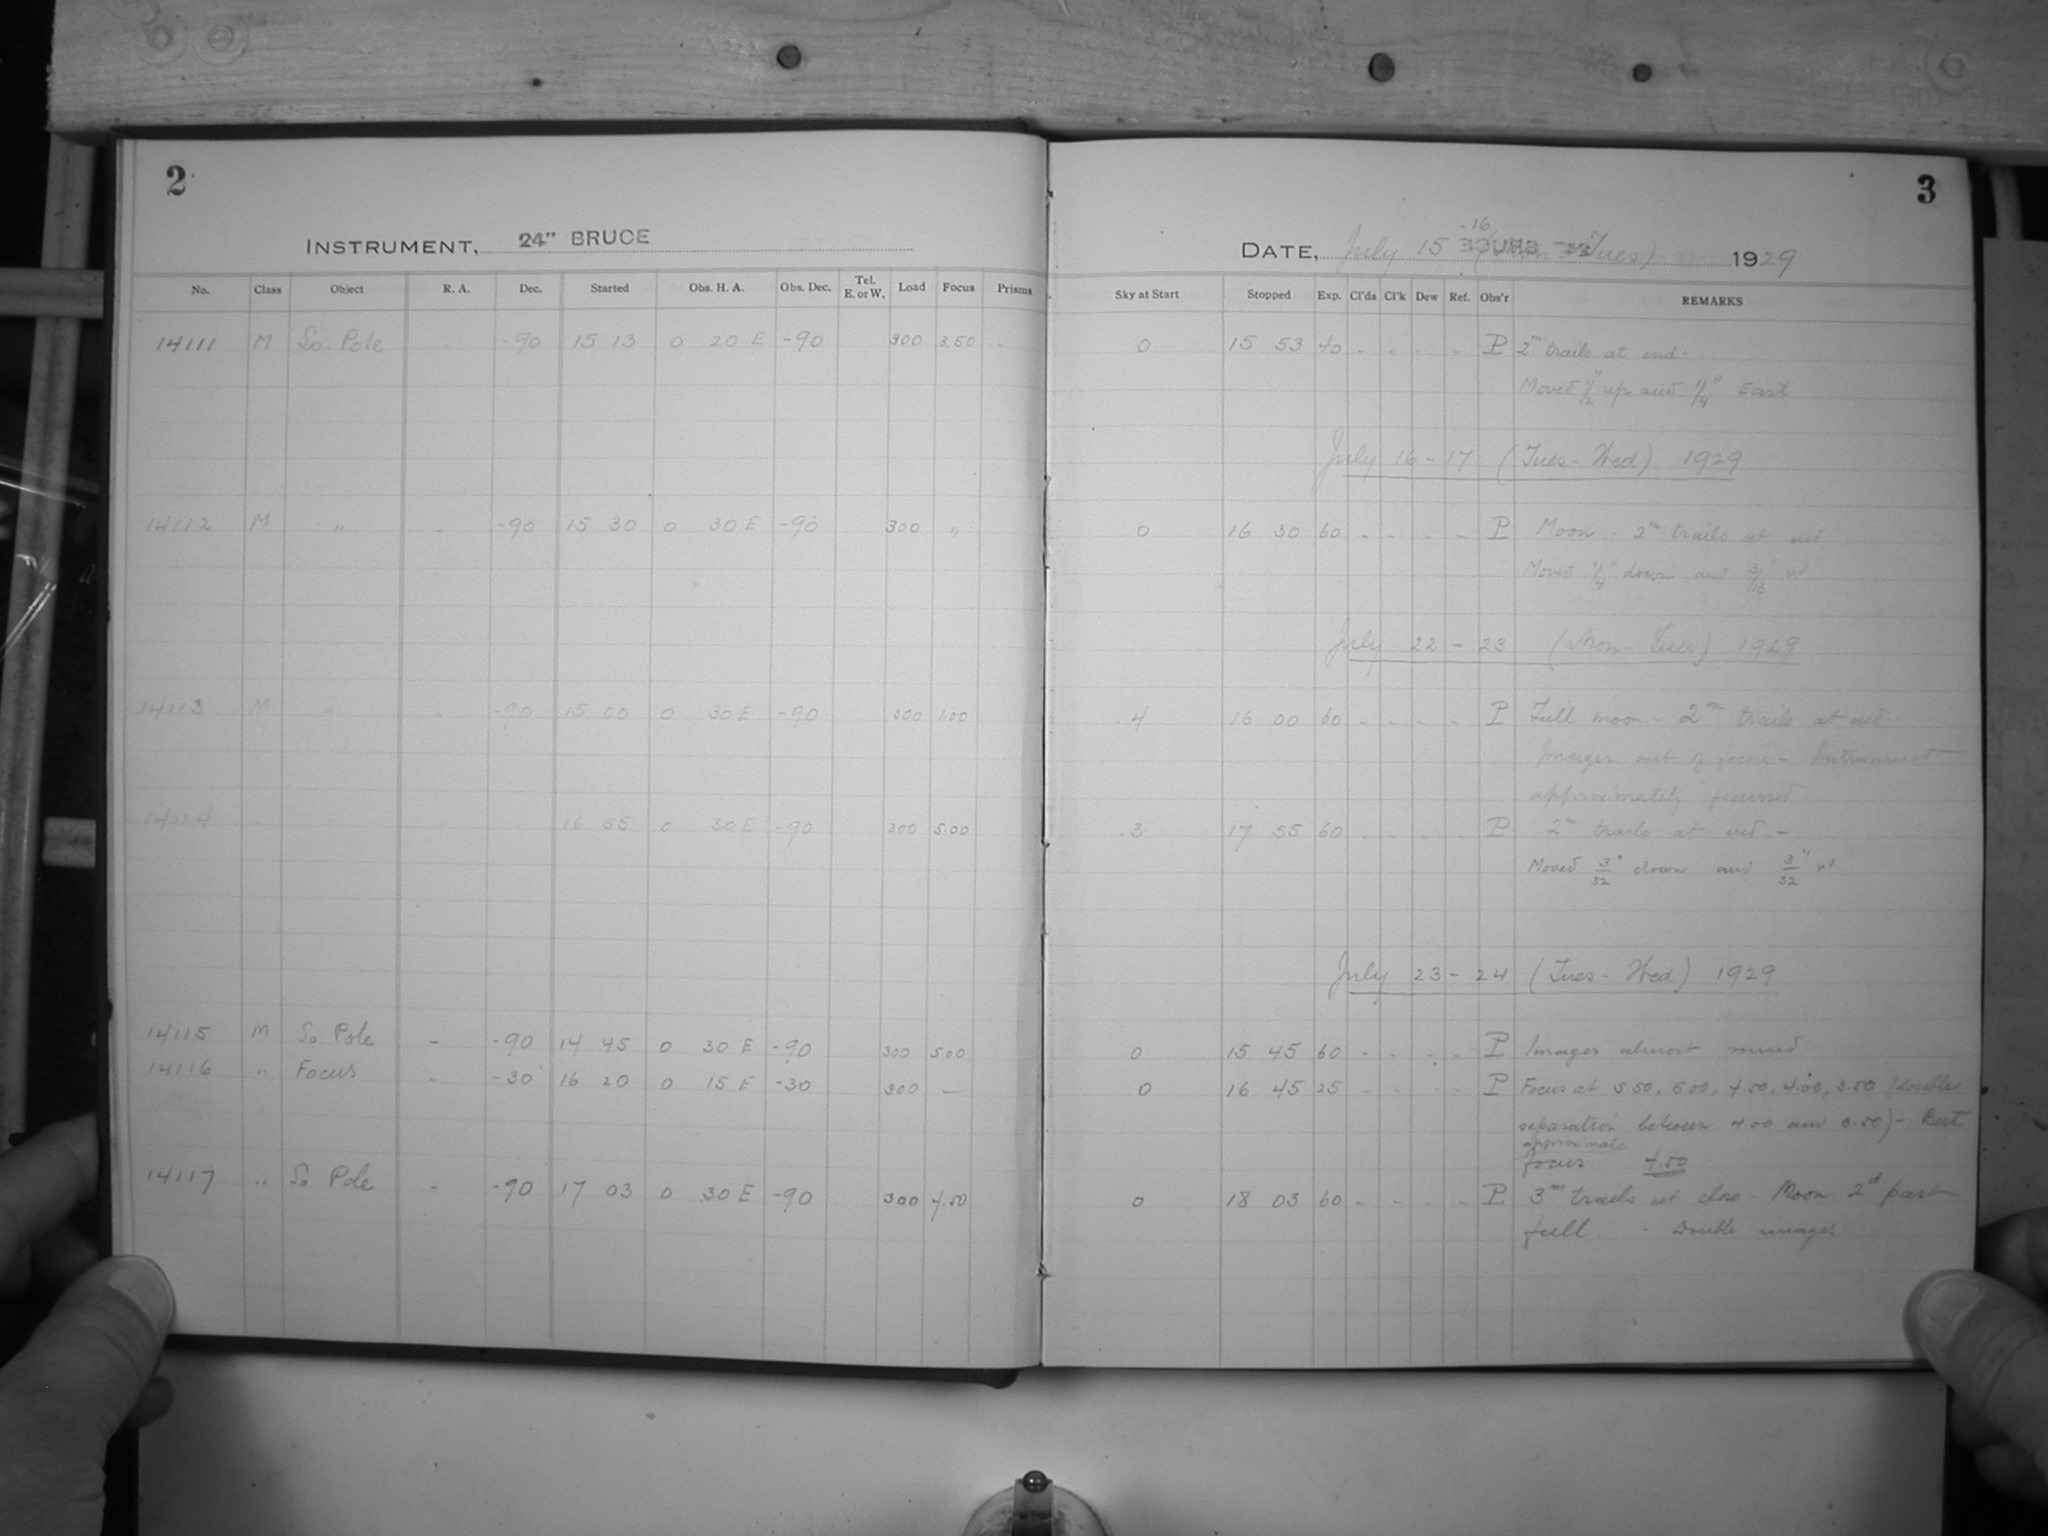 2
INSTRUMENT, 24" BRUCE
No. Class Object R. A. Dec. Started Obs. H. A. Obs. Dec. Tel. E. or W. Load Focus Prisms
14111 M So. Pole - -90 15 13 0 20 E -90 300 3.50 -
14112 M " - -90 15 30 0 30 E -90 300 "
14113 M " - -90 15 00 0 30 E -90 300 1.00
16 55 0 30 E -90 300 5.00
14115 M So Pole - -90 14 45 0 30 E -90 300 5.00
14116 " Focus - -30 16 20 0 15 E -30 300 —
14117 " So Pole - -90 17 03 0 30 E -90 300 4.50
3
-16
DATE, July 15 (Mon-Tues) 1929
Sky at Start Stopped Exp. Cl'ds Cl'k Dew Ref. Obs'r REMARKS
0 15 53 40 - - - - P 2m trails at end -
Moved 1/2" up and 1/4" East
July 16-17 (Tues-Wed) 1929
0 16 30 60 - - - - P Moon - 2m trails at end
Moved 1/4" down and 3/16" W
July 22-23 (Mon-Tues) 1929
4 16 00 60 - - - - P Full moon - 2m trails at end -
Images out of focus - Instrument
approximately focussed
3 17 55 60 - - - - P 2m trails at end -
Moved 3/32" down and 3/32" W
July 23-24 (Tues-Wed) 1929
0 15 45 60 - - - - P Images almost round
0 16 45 25 - - - - P Focus at 5.50, 5.00, 4.50, 4.00, 3.50 (double
separation between 4.00 and 3.50) - Best
approximate
focus 4.50
0 18 03 60 - - - - P 3m trails at close Moon 2d past
full. - Double images